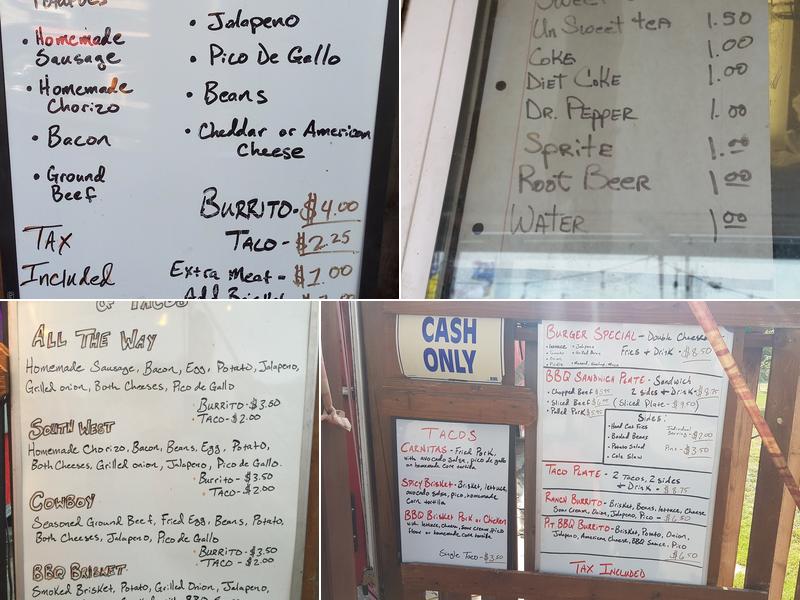 • Homemade
Sausage
• Homemade
Chorizo
• Bacon
• Ground
Beef
TAX
Included
• Jalapeno
• Pico De Gallo
• Beans
• Cheddar or American
Cheese
BURRITO- $4.00
TACO - $2.25
Extra meat = $1.00
Un Sweet tea 1.50
Coke 1.00
Diet Coke 1.00
Dr. Pepper 1.00
Sprite 1.00
Root Beer 1.00
Water 1.00
OF TACOS
ALL THE WAY
Homemade Sausage, Bacon, Egg, Potato, Jalapeno,
Grilled onion, Both Cheeses, Pico de Gallo
Burrito-$3.50
TACO-$2.00
SOUTH WEST
Homemade Chorizo, Bacon, Beans, Egg, Potato,
Both Cheeses, Grilled onion, Jalapeno, Pico de Gallo.
Burrito-$3.50
TACO-$2.00
COWBOY
Seasoned Ground Beef, Fried Egg, Beans, Potato,
Both Cheeses, Jalapeno, Pico de Gallo
Burrito-$3.50
TACO-$2.00
BBQ BRISKET
Smoked Brisket, Potato, Grilled Onion, Jalapeno,
CASH
ONLY
TACOS
CARNITAS - Fried Pork,
with avocado salsa, pico de gallo
on homemade corn tortilla
SPICY BRISKET - Brisket, lettuce,
avocado salsa, pico, homemade
Corn tortilla
BBQ Brisket Pork or Chicken
with lettuce, cheese, sour cream, pico
flour or homemade corn tortilla
Single Taco-$3.50
BURGER SPECIAL - Double Cheese
Fries + Drink - $8.50
BBQ SANDWICH PLATE - Sandwich
2 sides + Drink - $8.75
• Chopped Beef
• Sliced Beef (Sliced Plate - $9.50)
• Pulled Pork
Sides:
• Hand Cut Fries
• Baked Beans
• Potato Salad
• Cole Slaw
Individual
Serving - $2.00
Pint - $3.50
TACO PLATE - 2 Tacos, 2 sides
+ Drink - $8.75
RANCH BURRITO - Brisket, Beans, lettuce, Cheese
Sour Cream, Onion, Jalapeno, Pico - $6.50
PIT BBQ BURRITO - Brisket, Potato, Onion,
Jalapeno, American Cheese, BBQ Sauce, Pico
$6.50
TAX INCLUDED